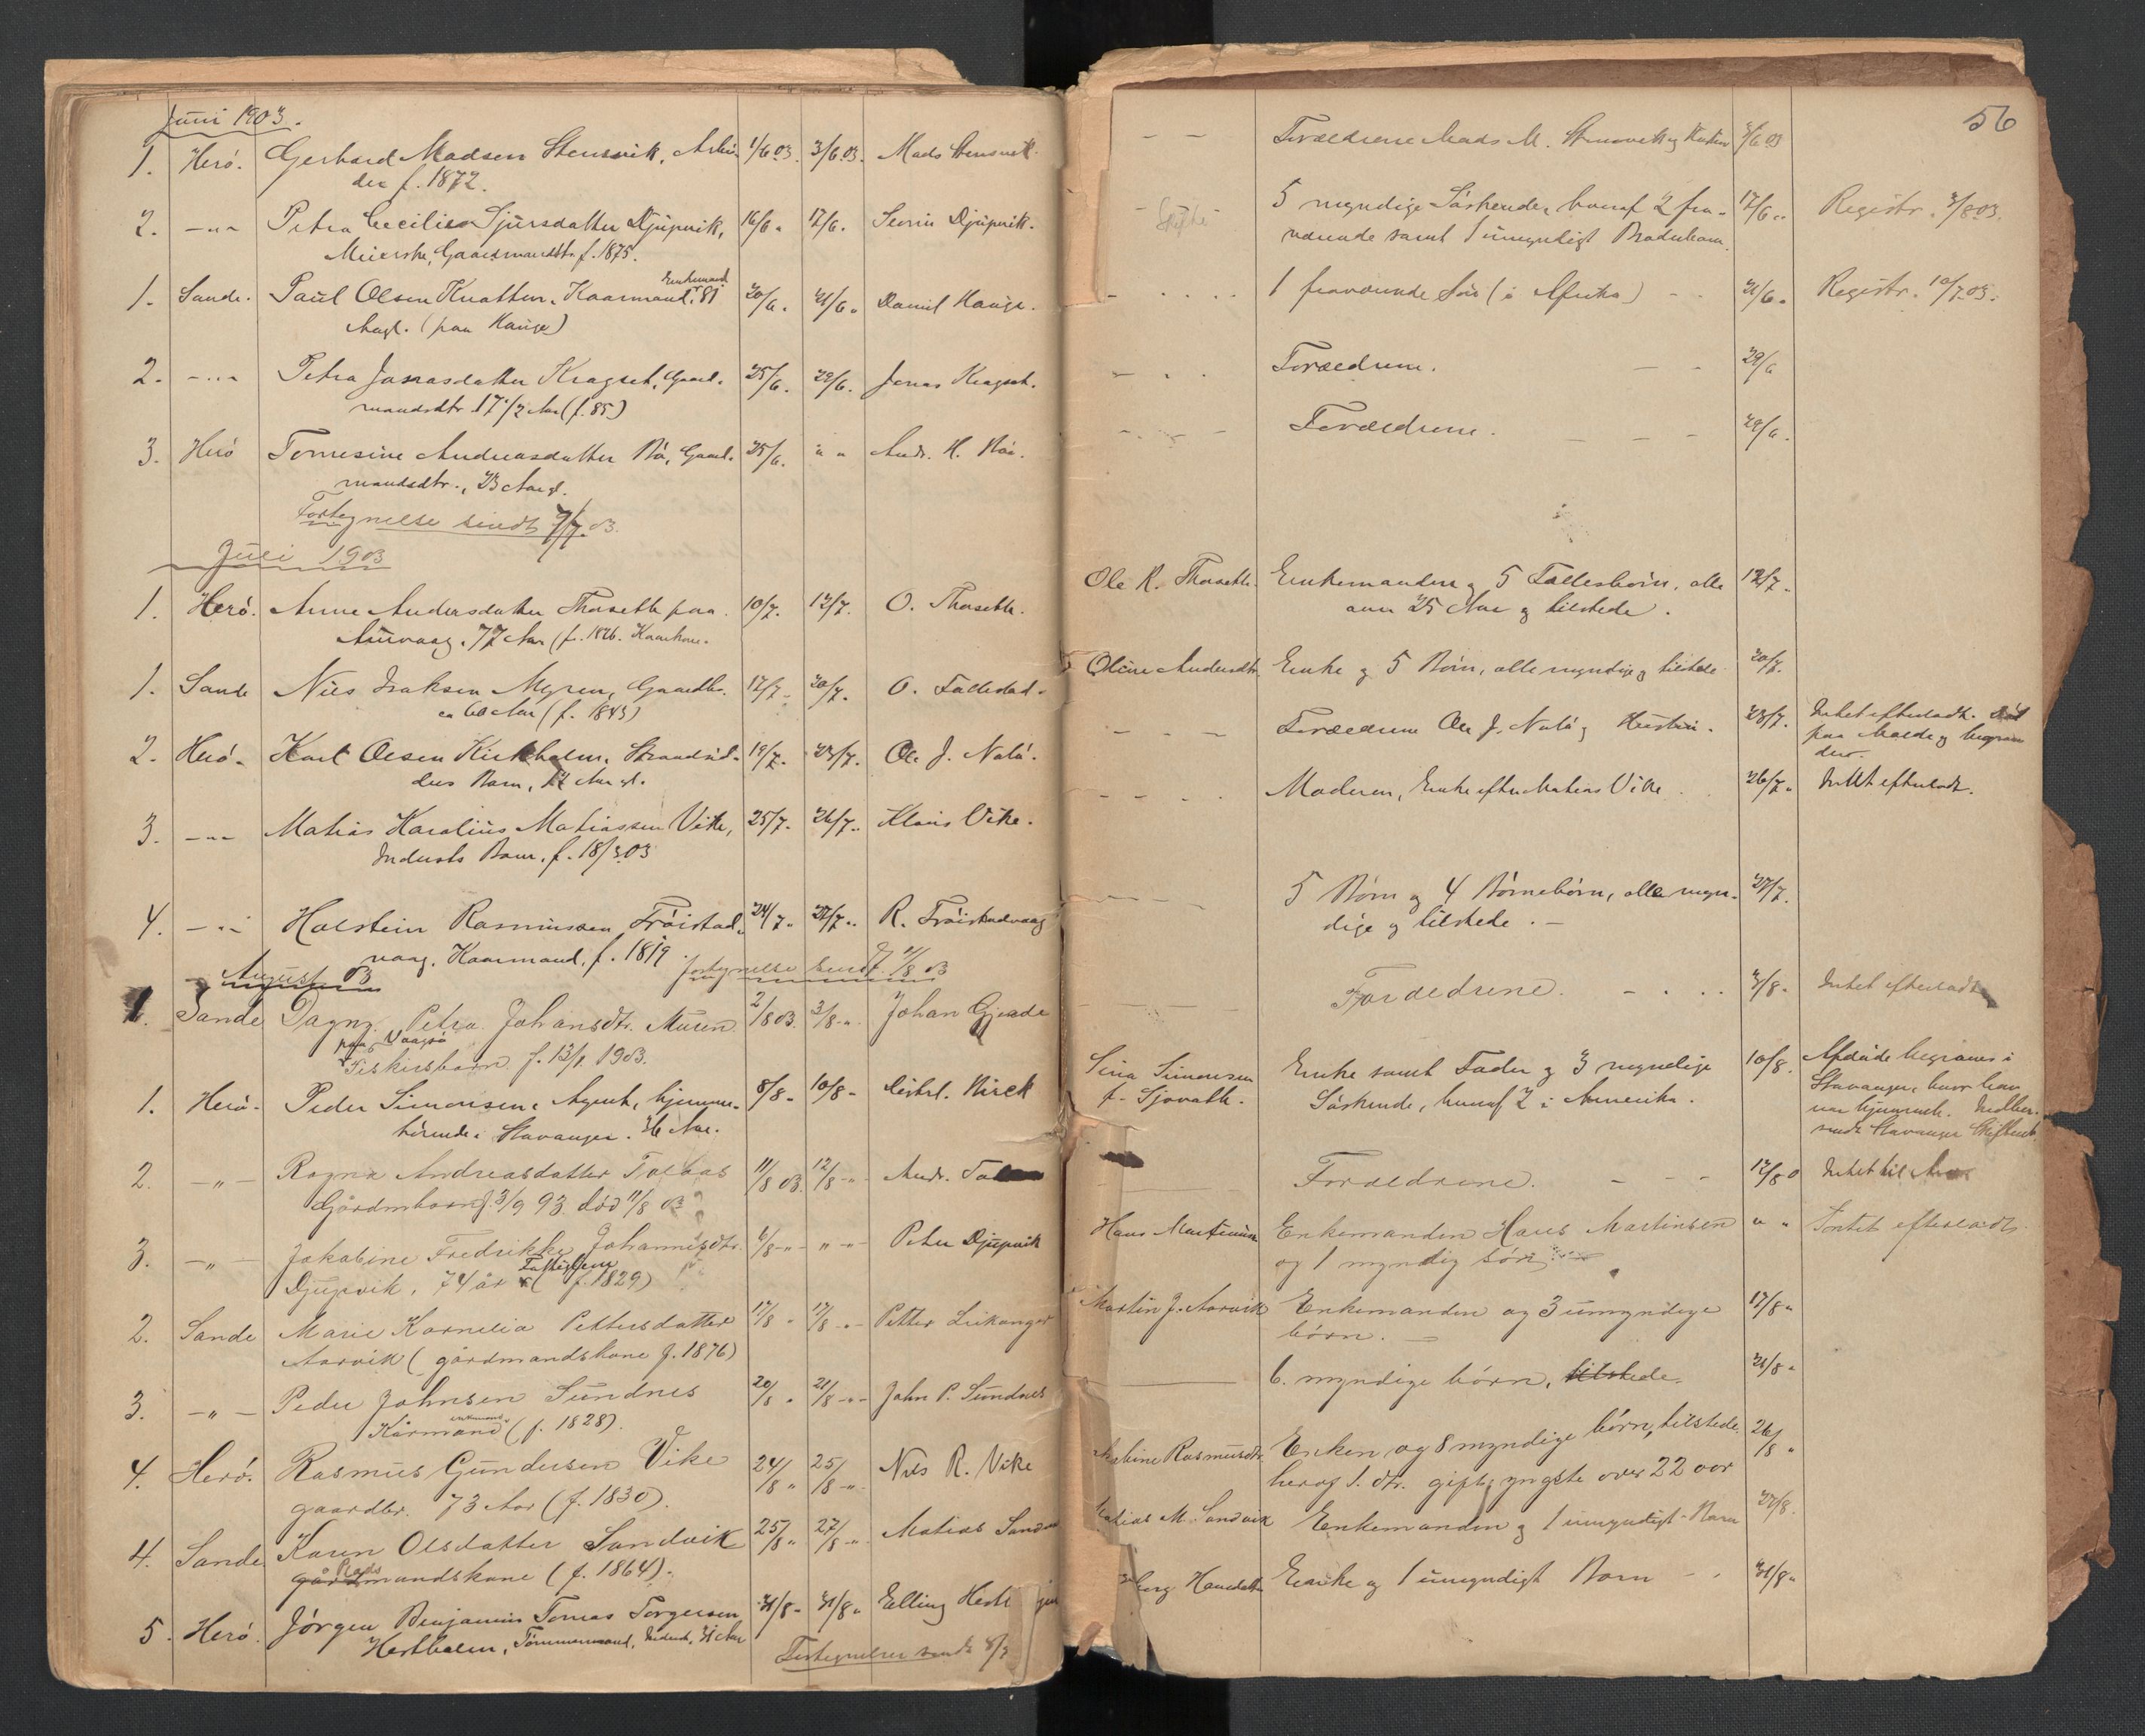 Juni 1903.
1. Herö. Gerhard Madsen Stensvik, Arbei- 1/6 03. 3/6 03. Mads Stensvik.
der f. 1872.
2. -"- Petra Cecilie Sjursdatter Djupvik, 16/6. 17/6. Severin Djupvik.
Meierske, Gaardmandsdtr. f. 1875.
1. Sande. Paul Olsen Knatten, Kaarmand, Enkemand 81 20/6. 21/6. Daniel Hauge.
Aargl. (paa Hauge)
2. -"- Petra Jonasdatter Kragset, Gaard- 25/6. 29/6. Jonas Kragset.
mandsdtr. 17 1/2 Aar (f. 85)
3. Herö Tomesine Andreasdatter Bö, Gaard- 25/6. " " Andr. H. Bö.
mandsdtr., 23 Aar gl.
Fortegnelse sendt 7/7. 03.
Juli 1903
1. Herö. Anne Andersdatter Thorseth paa 10/7. 12/7. O. Thorseth.
77 Aar (f. 1826. Kaarkone.
1. Sande Nils Isaksen Myren, Gaardbr. 17/7. 20/7. O. Tallestad.
ca 60 Aar (f. 1843)
2. Herö. Karl Olsen Kirkholm, Strandsid- 19/7. 23/7. Ole J. Nalö.
ders Barn, Aar gl.
3. -"- Matias Karolius Matiassen Vike, 25/7. 26/7. Klaus Vike.
Inderst Barn. f. 18/3 03
4. -"- Holstein Rasmussen Fröistad- 24/7. 27/7. R. Fröistadvaag
vaag. Kaarmand, f. 1819. fortegnelse sendt 1/8 03
August 03
1. Sande Dagny Petra Johansdtr. Muren 2/8 03. 3/8 -"- Johan Gjerde
paa Vaagsö
Fiskersbarn f. 13/1 1903.
1. Herö. Peder Simonsen, Agent, hjemme- 8/8 - 10/8 - Distrl. Nirck
hörende i Stavanger. 36 Aar.
2. -"- Ragna Andreasdatter Tolaas 11/8 03. 12/8 -"- Andr.
Gårdmbarn f. 3/9 93 död 11/8 03
3. -"- Jakobine Fredrikke Johannesdtr. 6/8 -"- " -"- Peter Djupvik
Djupvik, 74 år (Fattiglem f. 1829)
2. Sande Marie Kornelia Pettersdatter 17/8 - 17/8 -"- Petter Leikanger
Aarvik (gårdmandskone f. 1876)
3. -"- Peder Johnsen Sundnes 20/8 " 21/8 -"- John P. Sundnes
Kårmand enkemand (f. 1828).
4. Herö. Rasmus Gundersen Vike 24/8 " 25/8 -"- Nils R. Vike
gaardbr. 73 Aar (f. 1830).
4. Sande Karen Olsdatter Sandvik 25/8 " 27/8 -"- Matias
Plads gårdmandskone (f. 1864).
5. Herö. Jörgen Benjamin Tomas Torgersen 31/8 - 31/8 " Elling
Hestholm, Tömmermand, Inderst, 31 Aar
Fortegnelser sendt
56
- - Forældrene Mads M. Stensvik og 3/6 03
Skifte 5 myndige Söskende, hvoraf 2 fra- 17/6 " Registr. 3/8 03.
værende samt 1 umyndigt Broderbarn.
1 fraværende Sön (i Afrika) - - 21/6 " Registr. 10/7 03.
Forældrene. - - 29/6
Forældrene. - - - 29/6.
Ole R. Thorseth. Enkemanden og 5 Fællesbörn, alle 12/7.
over 25 Aar og tilstede.
Oline Andersdtr. Enke og 5 Börn, alle myndige og tilstede 20/7.
- - - Forældrene Ole J. Nalö og 23/7. Intet efterladt. Död
paa Molde og begraven
der.
- - - - Moderen, Enke efter Matias Vike 26/7. Intet efterladt.
- - - 5 Börn og 4 Börnebörn, alle myn- 27/7.
dige og tilstede. -
Forældrene. - - - 3/8. Intet efterladt
Sina Simonsen Enke samt Fader og 3 myndige 10/8. Afdöde begraves i
f. Sjovath. Söskende, hvoraf 2 i Amerika. Stavanger, hvor han
var hjemmeh. Indber.
sendt Stavanger Skifteret.
Forældrene. - - - 12/8 Intet til
Hans Martinsen Enkemanden Hans Martinsen " " Intet efterladt.
og 1 myndig sön
Martin J. Aarvik Enkemanden og 3 umyndige 17/8 "
börn. -
6. myndige börn, tilstede. 21/8 "
Rasmusdtr. Enken og 8 myndige börn, tilstede. 26/8 "
heraf 1. dtr. gift, yngste over 22 aar
Matias M. Sandvik Enkemanden og 1 umyndigt Barn 27/8.
Enke og 1 umyndigt Barn - - 31/8 "